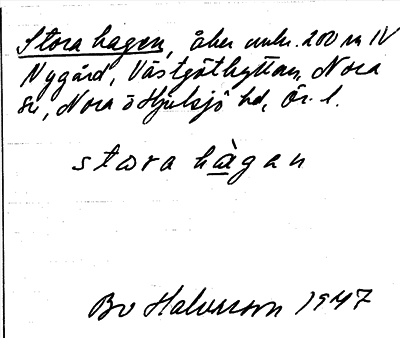 Stora hagen, åker omkr. 200 m NV
Nygård, Västgöthyttan, Nora
sn, Nora o Hjulsjö hd, Ör. l.
stora hàgan
Bo Halvorsson 1947